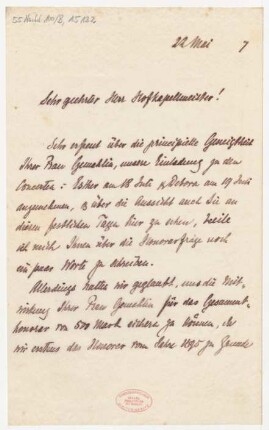 55 Nachl 100/B,
22 Mai 7
Sehr geehrter Herr Hofkapellmeister!
Sehr erfreut über die principielle Geneigtheit
Ihrer Frau Gemahlin, unsere Einladung zu den
Concerten: Esther am 18 Juli & Debora am 19 Juli
anzunehmen, & über die Aussicht auch Sie an
diesen festlichen Tagen hier zu sehen, beeile
ich mich, Ihnen über die Honorarfrage noch
ein paar Worte zu schreiben.
Allerdings hatten wir geglaubt, uns die Mit-
wirkung Ihrer Frau Gemahlin für das Gesammt-
honorar von 500 Mark sichern zu können, da
wir erstens das Honorar vom Jahre 1895 zu Grunde